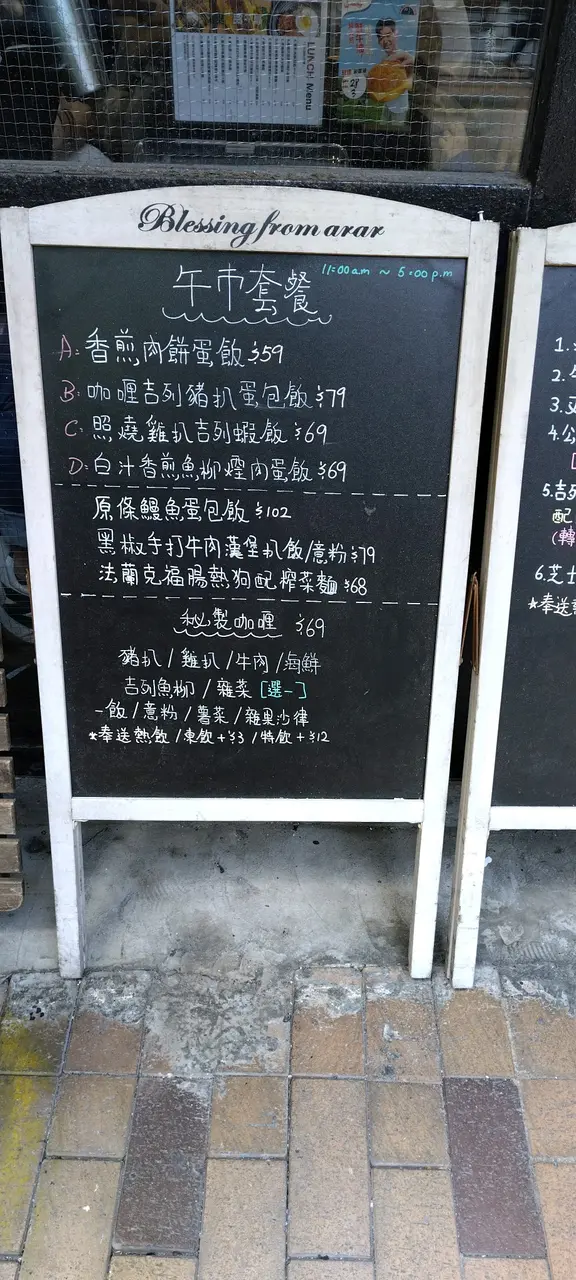 LUNCH Menu
Blessing from arar
午市套餐 11:00am ~ 5:00p.m
A: 香煎肉餅蛋飯 $59
B: 咖喱吉列豬扒蛋包飯 $79
C: 照燒雞扒吉列蝦飯 $69
D: 白汁香煎魚柳煙肉蛋飯 $69
原條鰻魚蛋包飯 $102
黑椒手打牛肉漢堡扒飯/意粉 $79
法蘭克福腸熱狗配榨菜麵 $68
秘製咖喱 $69
豬扒/雞扒/牛肉/海鮮
吉列魚柳/雜菜 [選一]
-飯/意粉/薯菜/雜果沙律
*奉送熱飲/凍飲+$3/特飲+$12
1.
2.
3.
4.公
5.吉列
配
(轉
6.芝士
*奉送熱